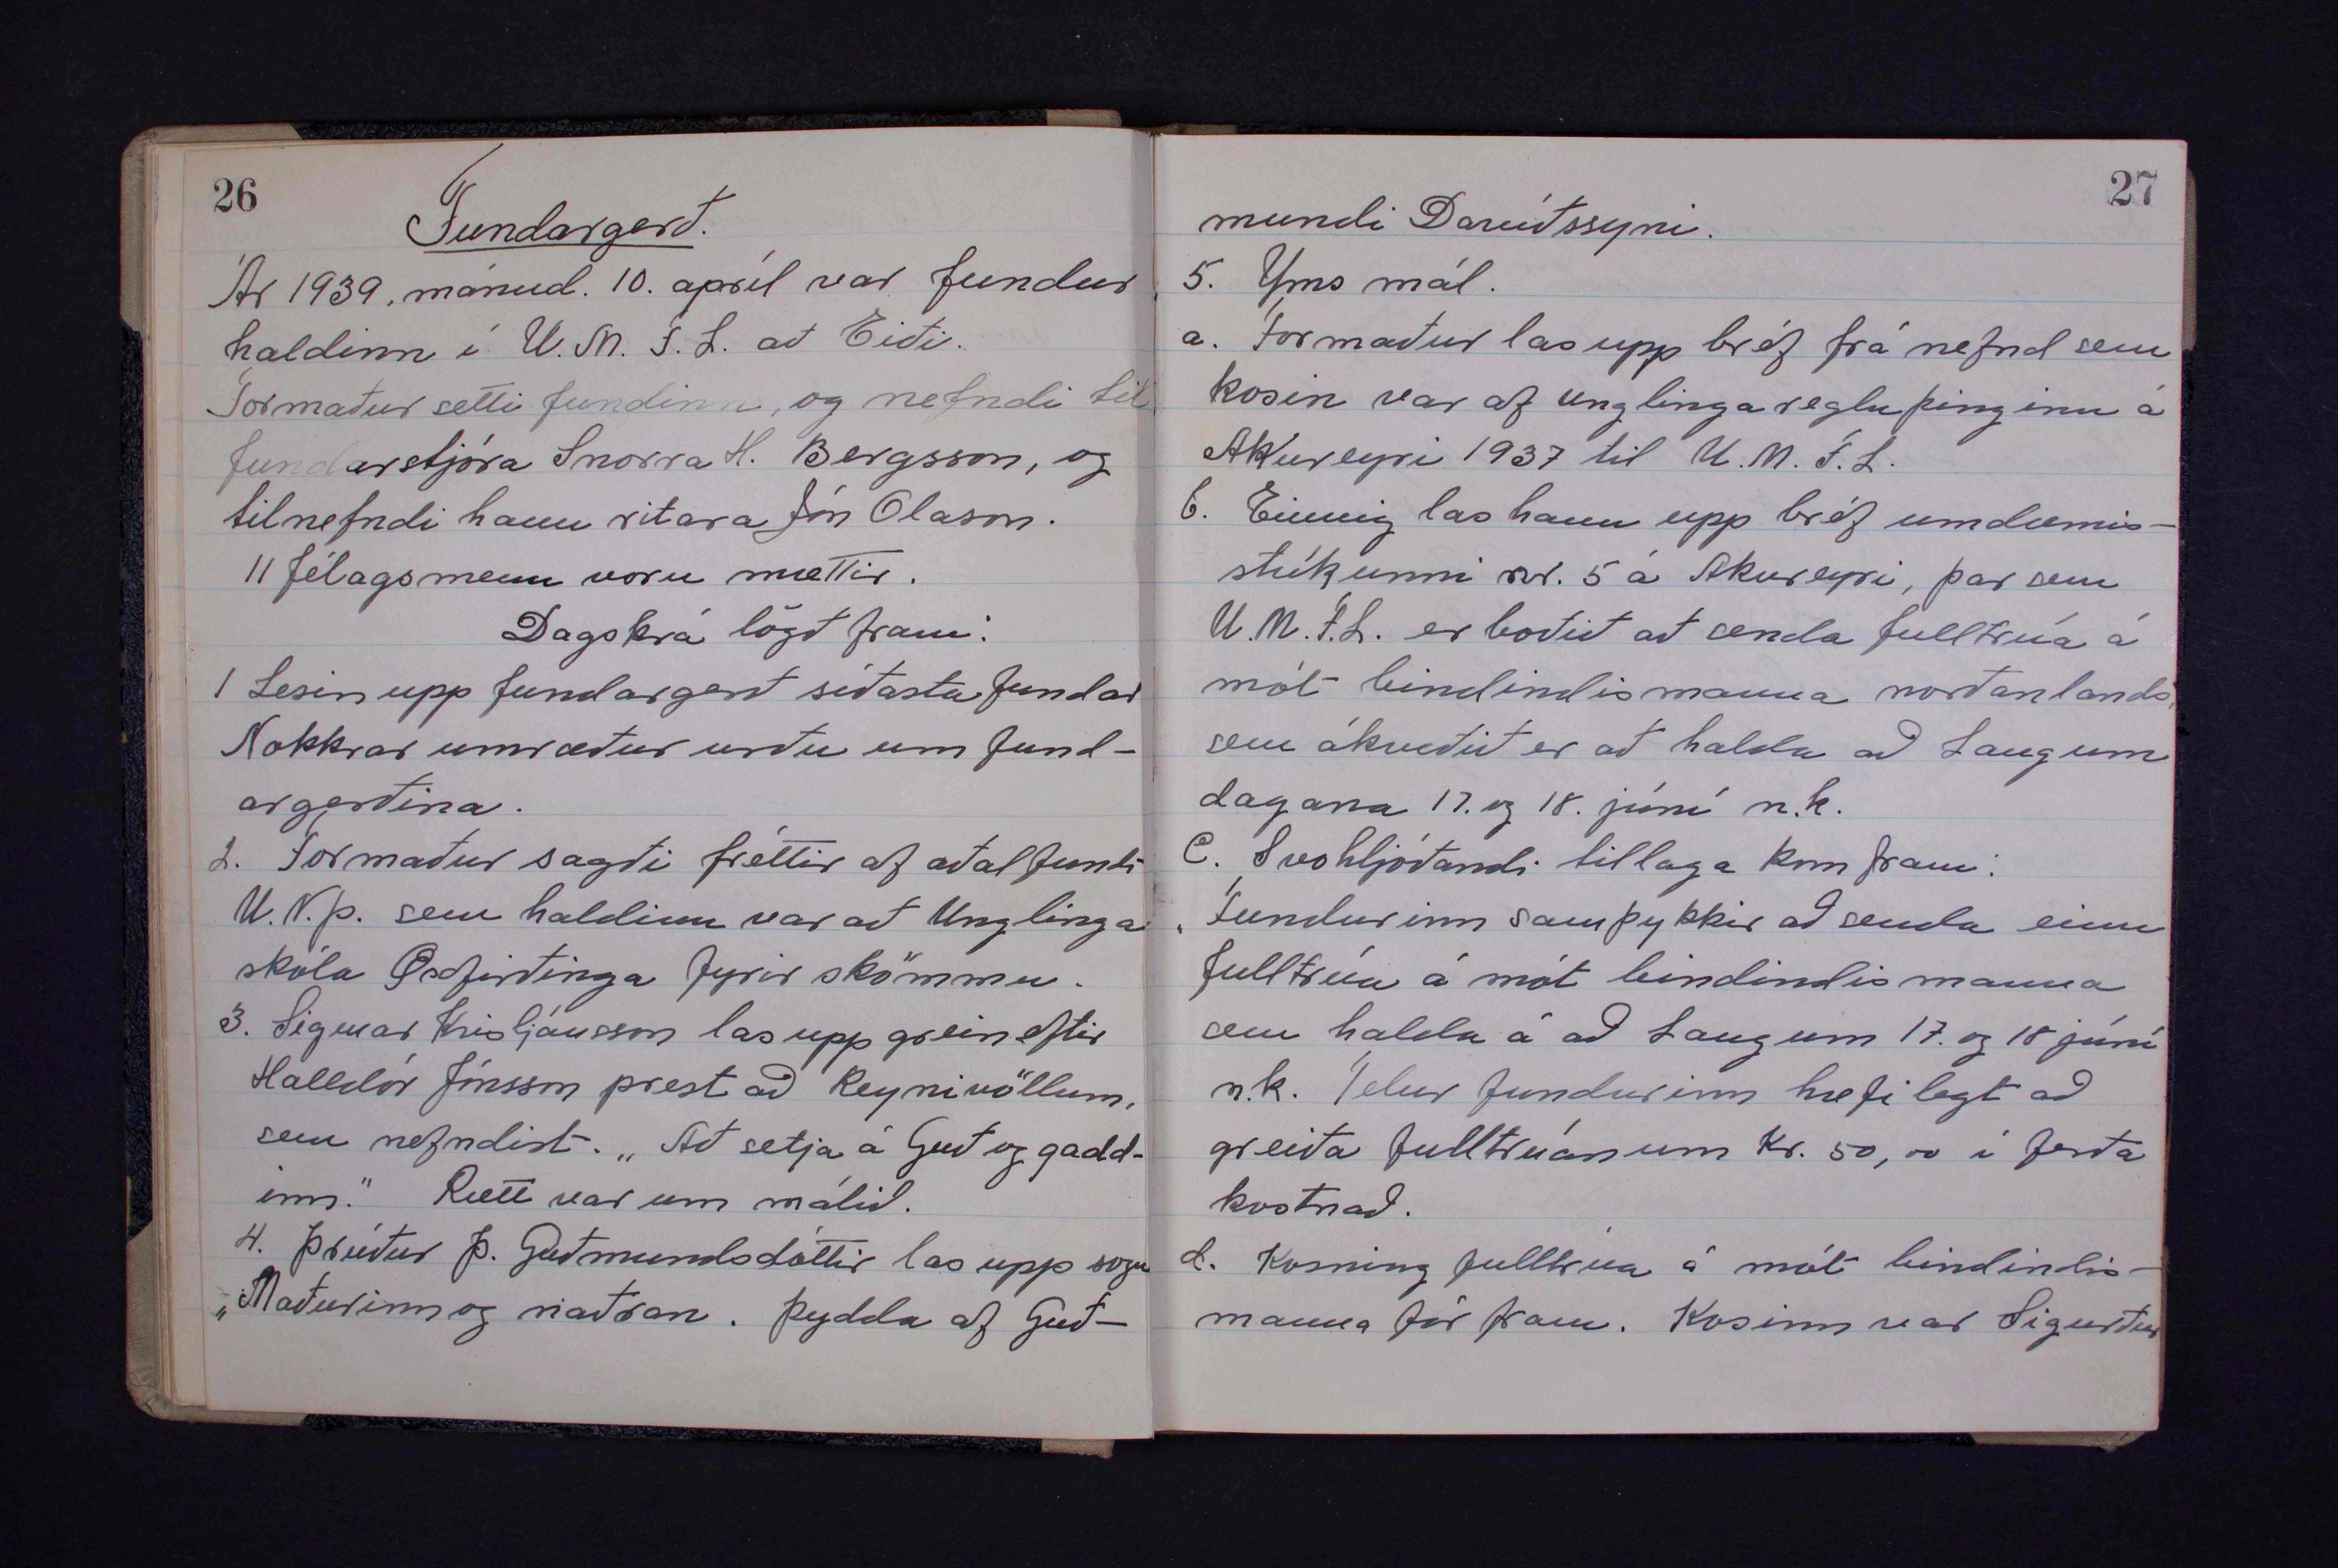 26
Fundargerð.
Ár 1939, mánud. 10. apríl var fundur
haldinn í U.M.F.L. að Eiði.
Formaður setti fundinn, og nefndi til
fundarstjóra Snorra H. Bergsson, og
tilnefndi hann ritara Jón Ólason.
11 félagsmenn voru mættir.
Dagskrá lögð fram:
1 Lesin upp fundargerð síðasta fundar
Nokkrar umræður urðu um fund-
argerðina.
2. Formaður sagði fréttir af aðalfundi
U.N.Þ. sem haldinn var að Unglinga
skóla Öxfirðinga fyrir skömmu.
3. Sigmar Kristjánsson las upp grein eftir
Halldór Jónsson prest að Reynivöllum,
sem nefndist. „Að setja á Guð og gadd-
inn." Rætt var um málið.
4. Þrúður Þ. Guðmundsdóttir las upp sögu
„Maðurinn og naðran. Þydda af Guð-
27
mundi Davíðssyni.
5. Yms mál.
a. Formaður las upp bréf frá nefnd sem
kosin var af unglingaregluþinginu á
Akureyri 1937 til U.M.F.L.
b. Einnig las hann upp bréf umdæmis-
stúkunni nr. 5 á Akureyri, þar sem
U.M.F.L. er boðið að senda fulltrúa á
mót bindindismanna norðanlands,
sem ákveðið er að halda að Laugum
dagana 17. og 18. júní n.k.
C. Svohljóðandi tillaga kom fram:
„Fundurinn samþykkir að senda einn
fulltrúa á mót bindindismanna
sem halda á að Laugum 17. og 18 júní
n.k. Telur fundurinn hæfilegt að
greiða fulltrúanum Kr. 50,00 í ferða
kostnað.
d. Kosning fulltrúa á mót bindindis-
manna fór fram. Kosinn var Sigurður